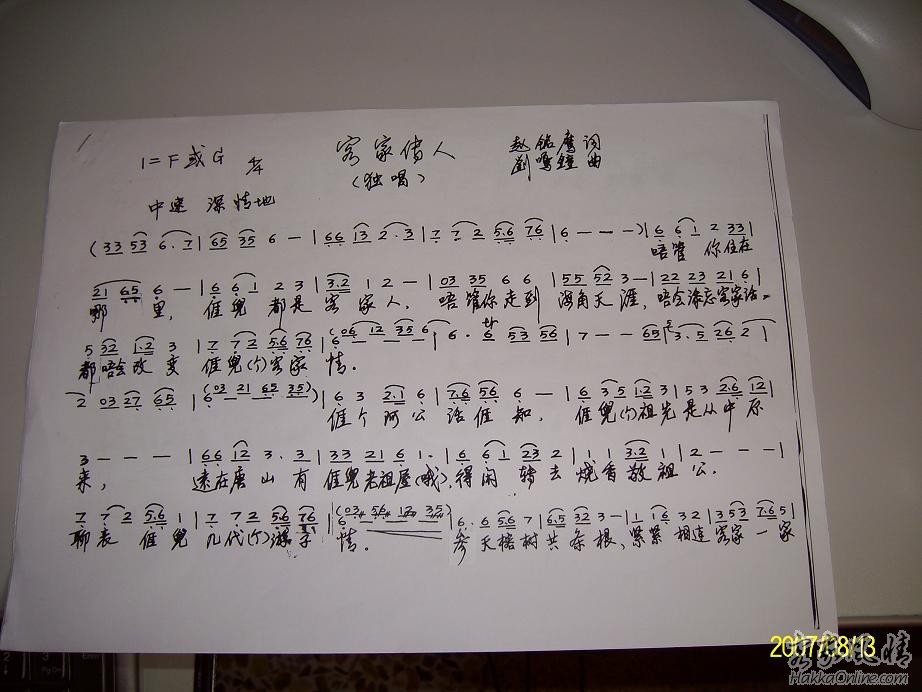 1
1=F或G 4/4 客家情人 赵铭鹰 词
(独唱) 刘鸣锺 曲
中速 深情地
(33 53 6. 7 | 65 35 6 — | 66 13 2. 3 | 7 7 2 5.6 76 | 6 — — —) | 6 6 1 2 33 |
唔管 你住在
21 65 6 — | 6 6 1 2 3 | 3.2 1 2 — | 03 35 6 6 | 55 52 3 — | 22 23 21 6 |
哪 里, 𠊎兜 都是 客 家人, 唔管你走到 海角天涯, 唔会添忘客家话。
5 32 1.2 3 | 7 7 2 5.6 76 | 6 — — — (06 12 35 6 | 6. 6 53 56 | 7 — — 65 | 3. 5 26 2 |
都唔会改 变 𠊎兜(个)客家 情。
2 03 27 65 | 6 — — — (03 21 65 35) | 6 3 2.1 6 | 7.6 5.6 6 — | 6 3 5 1.2 3 | 5 3 2.6 12 |
𠊎个 阿公 话𠊎 知, 𠊎兜(个)祖先是从中原
3 — — — | 66 12 3. 3 | 33 21 6 1. | 6 6 1 23 2 | 1 1 3.2 1 | 2 — — — |
来, 远在唐山 有 𠊎兜老祖屋(哦),得闲 转去 烧香敬祖公。
7 7 2 5.6 1 | 7 7 2 5.6 76 | 6 (03 56 12 35) | 6. 6 5.6 7 | 6.5 32 3 — | 1 16 32 | 3 53 7.6 5 |
聊表 𠊎兜 几代(个)游子 情。 参天榕树共条根、紧紧相连客家一家
2007/08/13
客家风情
HakkaOnline.com